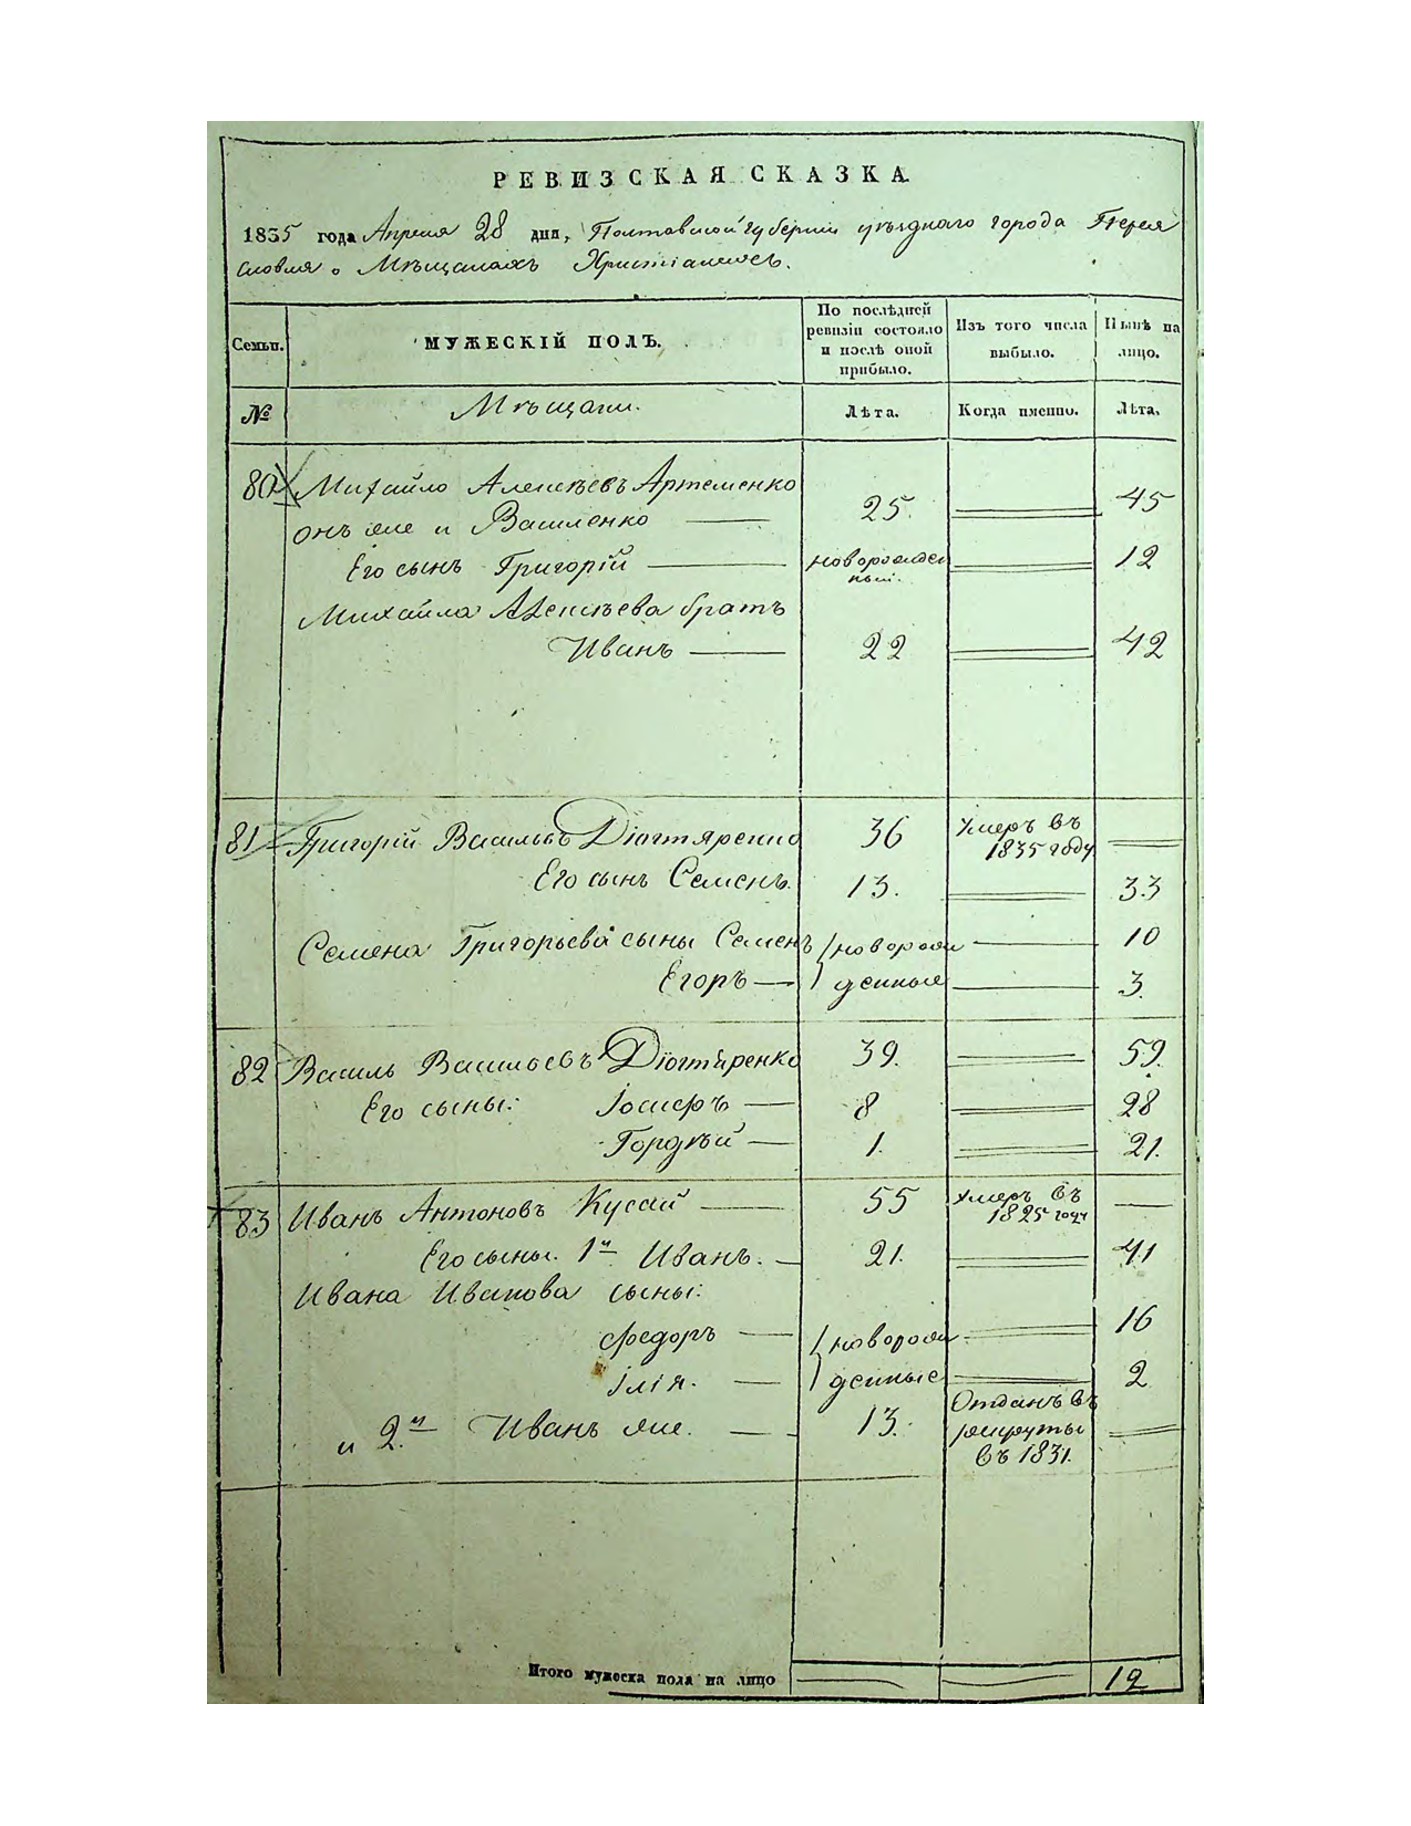 РЕВИЗСКАЯ СКАЗКА.
1835 года Апреля 28 дня, Полтавской губернии уѣзднаго города Перея
славля о Мѣщанахъ Христіанехъ.
Семьи.
МУЖЕСКІЙ ПОЛЪ.
По послѣдней ревизіи состояло и послѣ оной прибыло.
Изъ того числа выбыло.
Нынѣ на лицо.
№
Мѣщани.
Лѣта.
Когда именно.
Лѣта.
80 Михайло Алексѣевъ Артеменко
онъ же и Василенко 25. 45
Его сынъ Григорій новорожден
ный. 12
Михайла Алексѣева братъ
Иванъ 22 42
81 Григорій Васильевъ Діогтяренко 36 Умеръ въ
1835 году
Его сынъ Семенъ. 13. 33
Семена Григорьева сыны Семенъ новорож 10
Егоръ денные 3.
82 Василь Васильевъ Діогтяренко 39. 59.
Его сыны: Іосифъ 8 28
Гордѣй 1. 21.
83 Иванъ Антоновъ Кусай 55 умеръ въ
1825 году
Его сыны. 1й Иванъ. 21. 41
Ивана Иванова сыны:
Федоръ новорож 16
Ілія. денные 2
и 2.й Иванъ же. 13. Отданъ въ
рекруты
въ 1831.
Итого мужеска пола на лицо 12